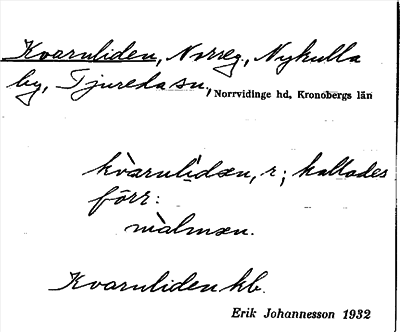 Kvarnliden, Norreg., Nykulla
by, Tjureda sn, Norrvidinge hd, Kronobergs län
kvàrnlìdæn, r; kallades
förr:
màlmæn.
Kvarnliden hb.
Erik Johannesson 1932